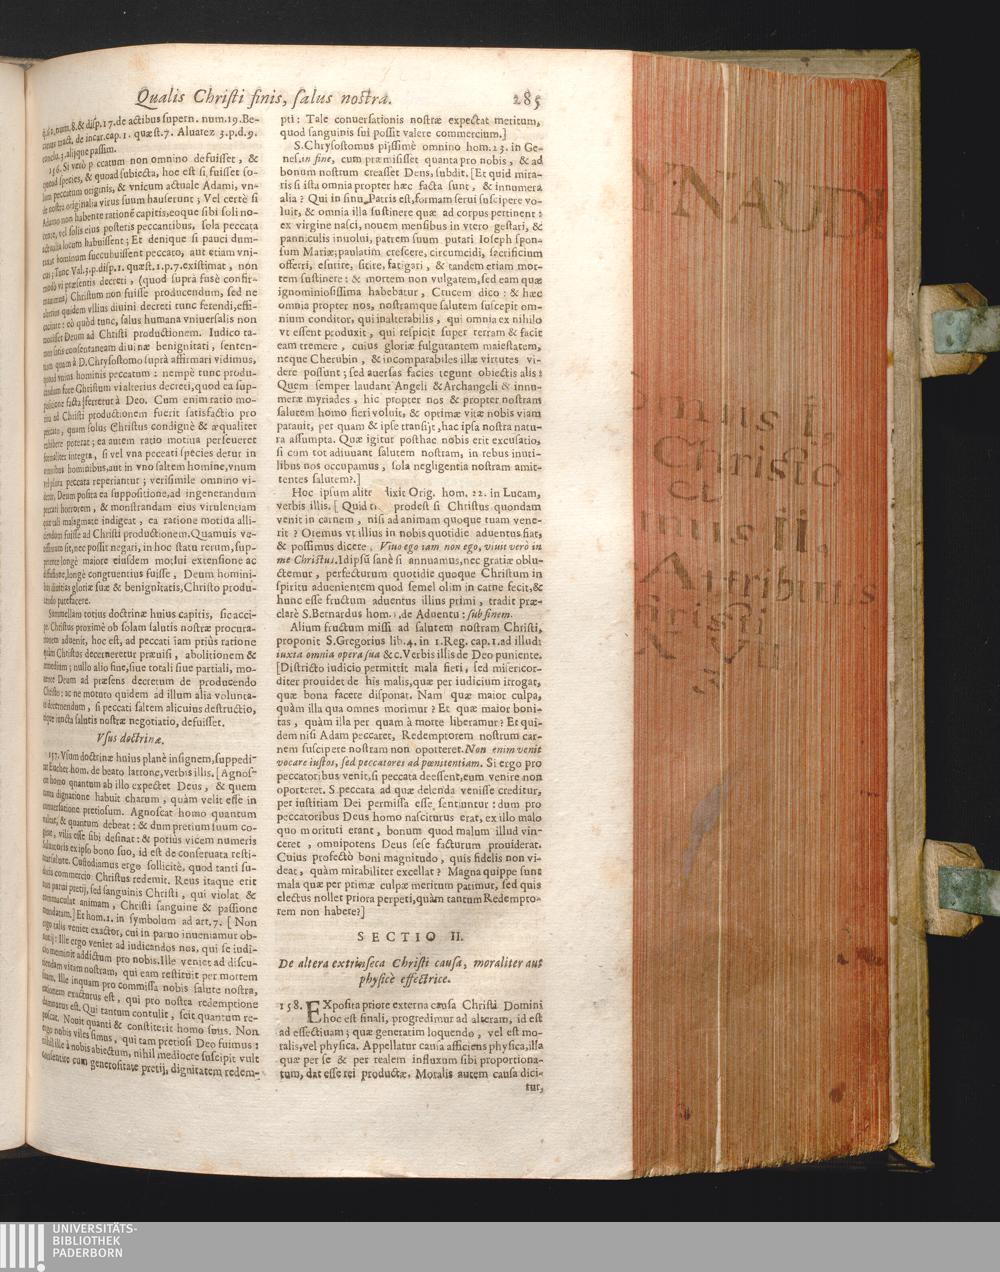 Qualis Christi finis, salus nostra. 285
q.52.num.8.& disp.17.de actibus supern. num.19.Be-
tract. de incar.cap.1. quæst.7. Aluarez 3.p.d.9.
conclu.3.alijque passim.
156. Si verò peccatum non omnino defuisset, &
quoad species, & quoad subiecta, hoc est si fuisset so-
lum peccatum originis, & vnicum actuale Adami, vn-
de nostra originalia virus suum hauserunt; Vel certè si
Adamo non habente rationē capitis, eoque sibi soli no-
cente, vel solis eius posteris peccantibus, sola peccata
actualia locum habuissent; Et denique si pauci dum-
taxat hominum succubuissent peccato, aut etiam vni-
cus; Tunc Val.3.p.disp.1. quæst.1.p.7.existimat, non
modò vi præsentis decreti, (quod suprà fusè confir-
mauimus) Christum non fuisse producendum, sed ne
alterius quidem vllius diuini decreti tunc ferendi, effi-
caciate: eò quòd tunc, salus humana vniuersalis non
mouisset Deum ad Christi productionem. Iudico ta-
men satis consentaneam diuinæ benignitati, senten-
tiam quam à D.Chrysostomo suprà affirmari vidimus,
quoad vnius hominis peccatum: nempè tunc produ-
cendum fore Christum vi alterius decreti, quod ea sup-
positione facta ferretur à Deo. Cum enim ratio mo-
tiua ad Christi productionem fuerit satisfactio pro
peccato, quam solus Christus condignè & æqualiter
exhibere poterat; ea autem ratio motiua perseueret
formaliter integra, si vel vna peccati species detur in
omnibus hominibus, aut in vno saltem homine, vnum
vel plura peccata reperiantur; verisimile omnino vi-
detur, Deum posita ea suppositione, ad ingenerandum
peccati horrorem, & monstrandam eius virulentiam
quæ tali malagmate indigeat, ea ratione motiua alli-
ciendum fuisse ad Christi productionem. Quamuis ve-
rissimum sit, nec possit negari, in hoc statu rerum, sup-
petente longè maiore eiusdem motiui extensione ac
diffusione, longè congruentius fuisse, Deum homini-
bus diuitias gloriæ suæ & benignitatis, Christo produ-
cendo patefacere.
Summellam totius doctrinæ huius capitis, sic acci-
pe. Christus proximè ob solam salutis nostræ procura-
tionem aduenit, hoc est, ad peccati iam priùs ratione
quàm Christus decerneretur præuisi, abolitionem &
remedium; nullo alio fine, siue totali siue partiali, mo-
uente Deum ad præsens decretum de producendo
Christo: ac ne moturo quidem ad illum alia volunta-
te decernendum, si peccati saltem alicuius destructio,
eique iuncta salutis nostræ negotiatio, defuisset.
Vsus doctrinæ.
157. Vsum doctrinæ huius planè insignem, suppedi-
tat Eucher. hom. de beato latrone, verbis illis. [Agnos-
cat homo quantum ab illo expectet Deus, & quem
tanta dignatione habuit charum, quàm velit esse in
conuersatione pretiosum. Agnoscat homo quantum
valeat, & quantum debeat: & dum pretium suum co-
gitat, vilis esse sibi desinat: & potiùs vicem numeris
Saluatoris ex ipso bono suo, id est de conseruata resti-
tuat salute. Custodiamus ergo sollicitè, quod tanti su-
dicia commercio Christus redemit. Reus itaque erit
non parui pretij, sed sanguinis Christi, qui violat &
commaculat animam, Christi sanguine & passione
mundatam.] Et hom.1. in symbolum ad art.7. [Non
ergo talis veniet exactor, cui in paruo inueniamur ob-
noxij: Ille ergo veniet ad iudicandos nos, qui se iudi-
cio meminit addictum pro nobis. Ille veniet ad discu-
tiendam vitam nostram, qui eam restituit per mortem
suam. Ille inquam pro commissa nobis salute nostra,
rationem exacturus est, qui pro nostra redemptione
damnatus est. Qui tantum contulit, scit quantum re-
poscat. Nouit quanti & constiterit homo suus. Non
ergo nobis viles simus, qui tam pretiosi Deo fuimus:
nihil ille à nobis abiectum, nihil mediocre suscipit vult
consentire cum generositate pretij, dignitatem redem-
pti: Tale conuersationis nostræ expectat meritum,
quod sanguinis sui possit valere commercium.]
S.Chrysostomus pijssimè omnino hom.23. in Ge-
nes.in fine, cum præmisisset quanta pro nobis, & ad
bonum nostrum creasset Deus, subdit. [Et quid mira-
ris si ista omnia propter hæc facta sunt, & innumera
alia? Qui in sinu Patris est, formam serui suscipere vo-
luit, & omnia illa sustinere quæ ad corpus pertinent:
ex virgine nasci, nouem mensibus in vtero gestari, &
panniculis inuolui, patrem suum putari Ioseph spon-
sum Mariæ; paulatim crescere, circumcidi, sacrificium
offerri, esurire, sitire, fatigari, & tandem etiam mor-
tem sustinere: & mortem non vulgatem, sed eam quæ
ignominiosissima habebatur, Crucem dico: & hæc
omnia propter nos, nostramque salutem suscepit om-
nium conditor, qui inalterabilis, qui omnia ex nihilo
vt essent produxit, qui respicit super terram & facit
eam tremere, cuius gloriæ fulgurantem maiestatem,
neque Cherubin, & incomparabiles illæ virtutes vi-
dere possunt; sed auersas facies tegunt obiectis alis:
Quem semper laudant Angeli & Archangeli & innu-
meræ myriades, hic propter nos & propter nostram
salutem homo fieri voluit, & optimæ vitæ nobis viam
parauit, per quam & ipse transijt, hac ipsa nostra natu-
ra assumpta. Quæ igitur posthac nobis erit excusatio,
si cum tot adiuuant salutem nostram, in rebus inuti-
libus nos occupamus, sola negligentia nostram amit-
tentes salutem?.]
Hoc ipsum alite dixit Orig. hom. 22. in Lucam,
verbis illis. [Quid ti prodest si Christus quondam
venit in carnem, nisi ad animam quoque tuam vene-
rit? Oremus vt illius in nobis quotidie aduentus fiat,
& possimus dicere, Viuo ego iam non ego, viuit verò in
me Christus. Id ipsū sanè si annuamus, nec gratiæ oblu-
ctemur, perfecturum quotidie quoque Christum in
spiritu aduenientem quod semel olim in carne fecit, &
hunc esse fructum aduentus illius primi, tradit præ-
clarè S.Bernardus hom. .de Aduentu: sub finem.
Alium fructum missi ad salutem nostram Christi,
proponit S.Gregorius lib.4. in 1.Reg. cap.1.ad illud:
iuxta omnia opera sua &c. Verbis illis de Deo puniente.
[Districto iudicio permittit mala fieri, sed misericor-
diter prouidet de his malis, quæ per iudicium irrogat,
quæ bona facere disponat. Nam quæ maior culpa,
quàm illa qua omnes morimur? Et quæ maior boni-
tas, quàm illa per quam à morte liberamur? Et qui-
dem nisi Adam peccaret, Redemptorem nostrum car-
nem suscipere nostram non oporteret. Non enim venit
vocare iustos, sed peccatores ad pœnitentiam. Si ergo pro
peccatoribus venit, si peccata deessent, eum venire non
oporteret. S peccata ad quæ delenda venisse creditur,
per iustitiam Dei permissa esse, sentiuntur: dum pro
peccatoribus Deus homo nasciturus erat, ex illo malo
quo morituti erant, bonum quod malum illud vin-
ceret, omnipotens Deus sese facturum prouiderat.
Cuius profectò boni magnitudo, quis fidelis non vi-
deat, quàm mirabiliter excellat? Magna quippe sunt
mala quæ per primæ culpæ meritum patimur, sed quis
electus nollet priora perpeti, quàm tantum Redempto-
rem non habere?]
SECTIO II.
De altera extrinseca Christi causa, moraliter aut
physicè effectrice.
158. EXposita priore externa causa Christi Domini
hoc est finali, progredimur ad alteram, id est
ad effectiuam; quæ generatim loquendo, vel est mo-
ralis, vel physica. Appellatur causa afficiens physica, illa
quæ per se & per realem influxum sibi proportiona-
tum, dat esse rei productæ. Moralis autem causa dici-
tur,
NAUDI
mus i,
Christo
et
mus ii.
Attribut s
UNIVERSITÄTS-
BIBLIOTHEK
PADERBORN